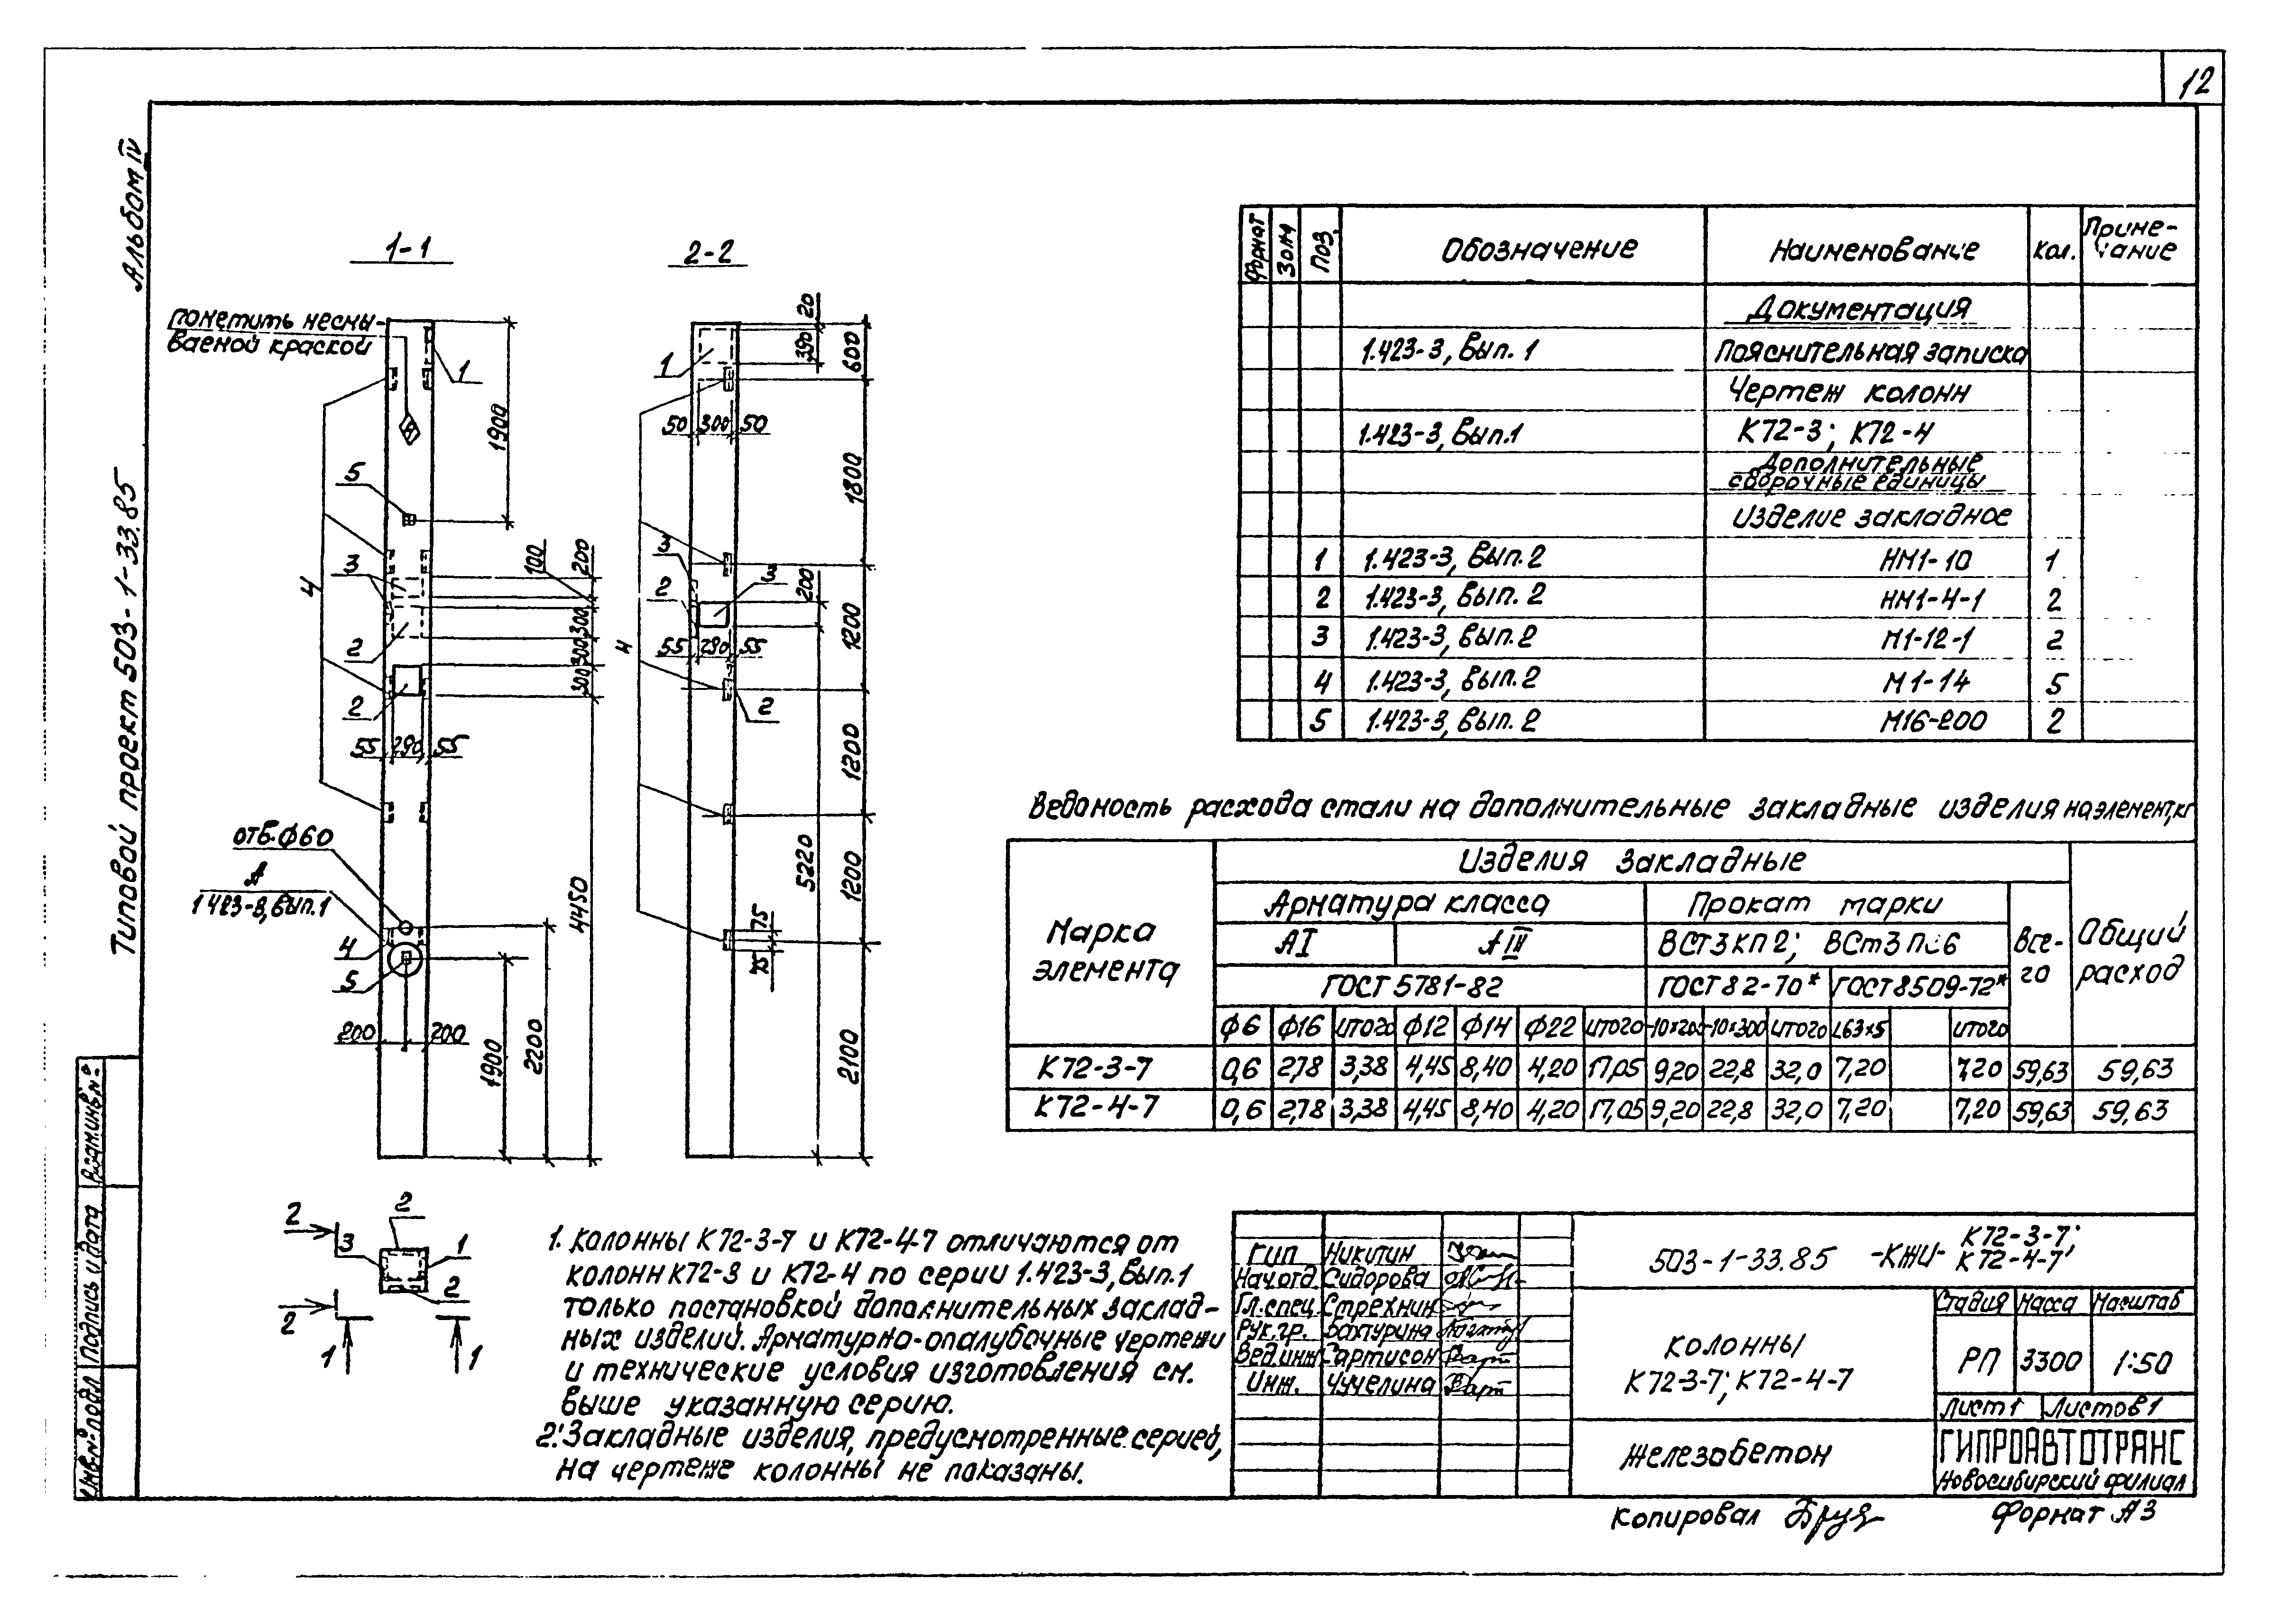 12
Альбом IV
Типовой проект 503-1-33.85
Взам.инв.№
Подпись и дата
Инв.№ подл
1-1
2-2
пометить несмы-
ваемой краской
1
5
3
4
2
2
1900
100
200
300
300
300
4450
55 290 55
отб.ф60
А
1 423-8, вып.1
4
5
200
200
1900
2200
1
20
390
600
50 300 50
1800
3
3
2
200
4
55 290 55
1200
2
1200
5220
1200
75
75
2100
2
2
3
1
2
2
1
1
Формат
Зона
Поз.
Обозначение
Наименование
Кол.
Приме-
чание
Документация
1.423-3, Вып. 1 Пояснительная записка
Чертеж колонн
1.423-3, Вып.1 К72-3; К72-4
Дополнительные
сборочные единицы
Изделие закладное
1 1.423-3, Вып.2 НМ1-10 1
2 1.423-3, Вып. 2 НМ1-4-1 2
3 1.423-3, вып.2 М1-12-1 2
4 1.423-3, вып.2 М1-14 5
5 1.423-3, вып.2 М16-200 2
Ведомость расхода стали на дополнительные закладные изделия на элемент, кг
Марка
элемента
Изделия закладные
Арматура класса
Прокат марки
АI
АIII
ВСт3 КП 2; ВСт3 ПС6
Все-
го
Общий
расход
ГОСТ 5781-82
ГОСТ 82-70*
ГОСТ 8509-72*
ф6 ф16 итого ф12 ф14 ф22 итого -10×200 -10×300 итого L63×5 итого
К72-3-7 0,6 2,78 3,38 4,45 8,40 4,20 17,05 9,20 22,8 32,0 7,20 7,20 59,63 59,63
К72-4-7 0,6 2,78 3,38 4,45 8,40 4,20 17,05 9,20 22,8 32,0 7,20 7,20 59,63 59,63
1. Колонны К72-3-7 и К72-4-7 отличаются от
колонн К72-3 и К72-4 по серии 1.423-3, вып.1
только постановкой дополнительных заклад-
ных изделий. Арматурно-опалубочные чертежи
и технические условия изготовления см.
выше указанную серию.
2. Закладные изделия, предусмотренные серией,
на чертеже колонны не показаны.
ГИП Никитин
Нач.отд. Сидорова
Гл.спец. Стрехнин
Рук.гр. Бахтурина
Вед.инж Сартисон
Инж. Чучелина
503-1-33.85 -КЖИ- К72-3-7;
К72-4-7
Колонны
К72-3-7; К72-4-7
Стадия Масса Масштаб
РП 3300 1:50
Лист 1 Листов 1
Железобетон
ГИПРОАВТОТРАНС
Новосибирский филиал
Копировал
Формат А3